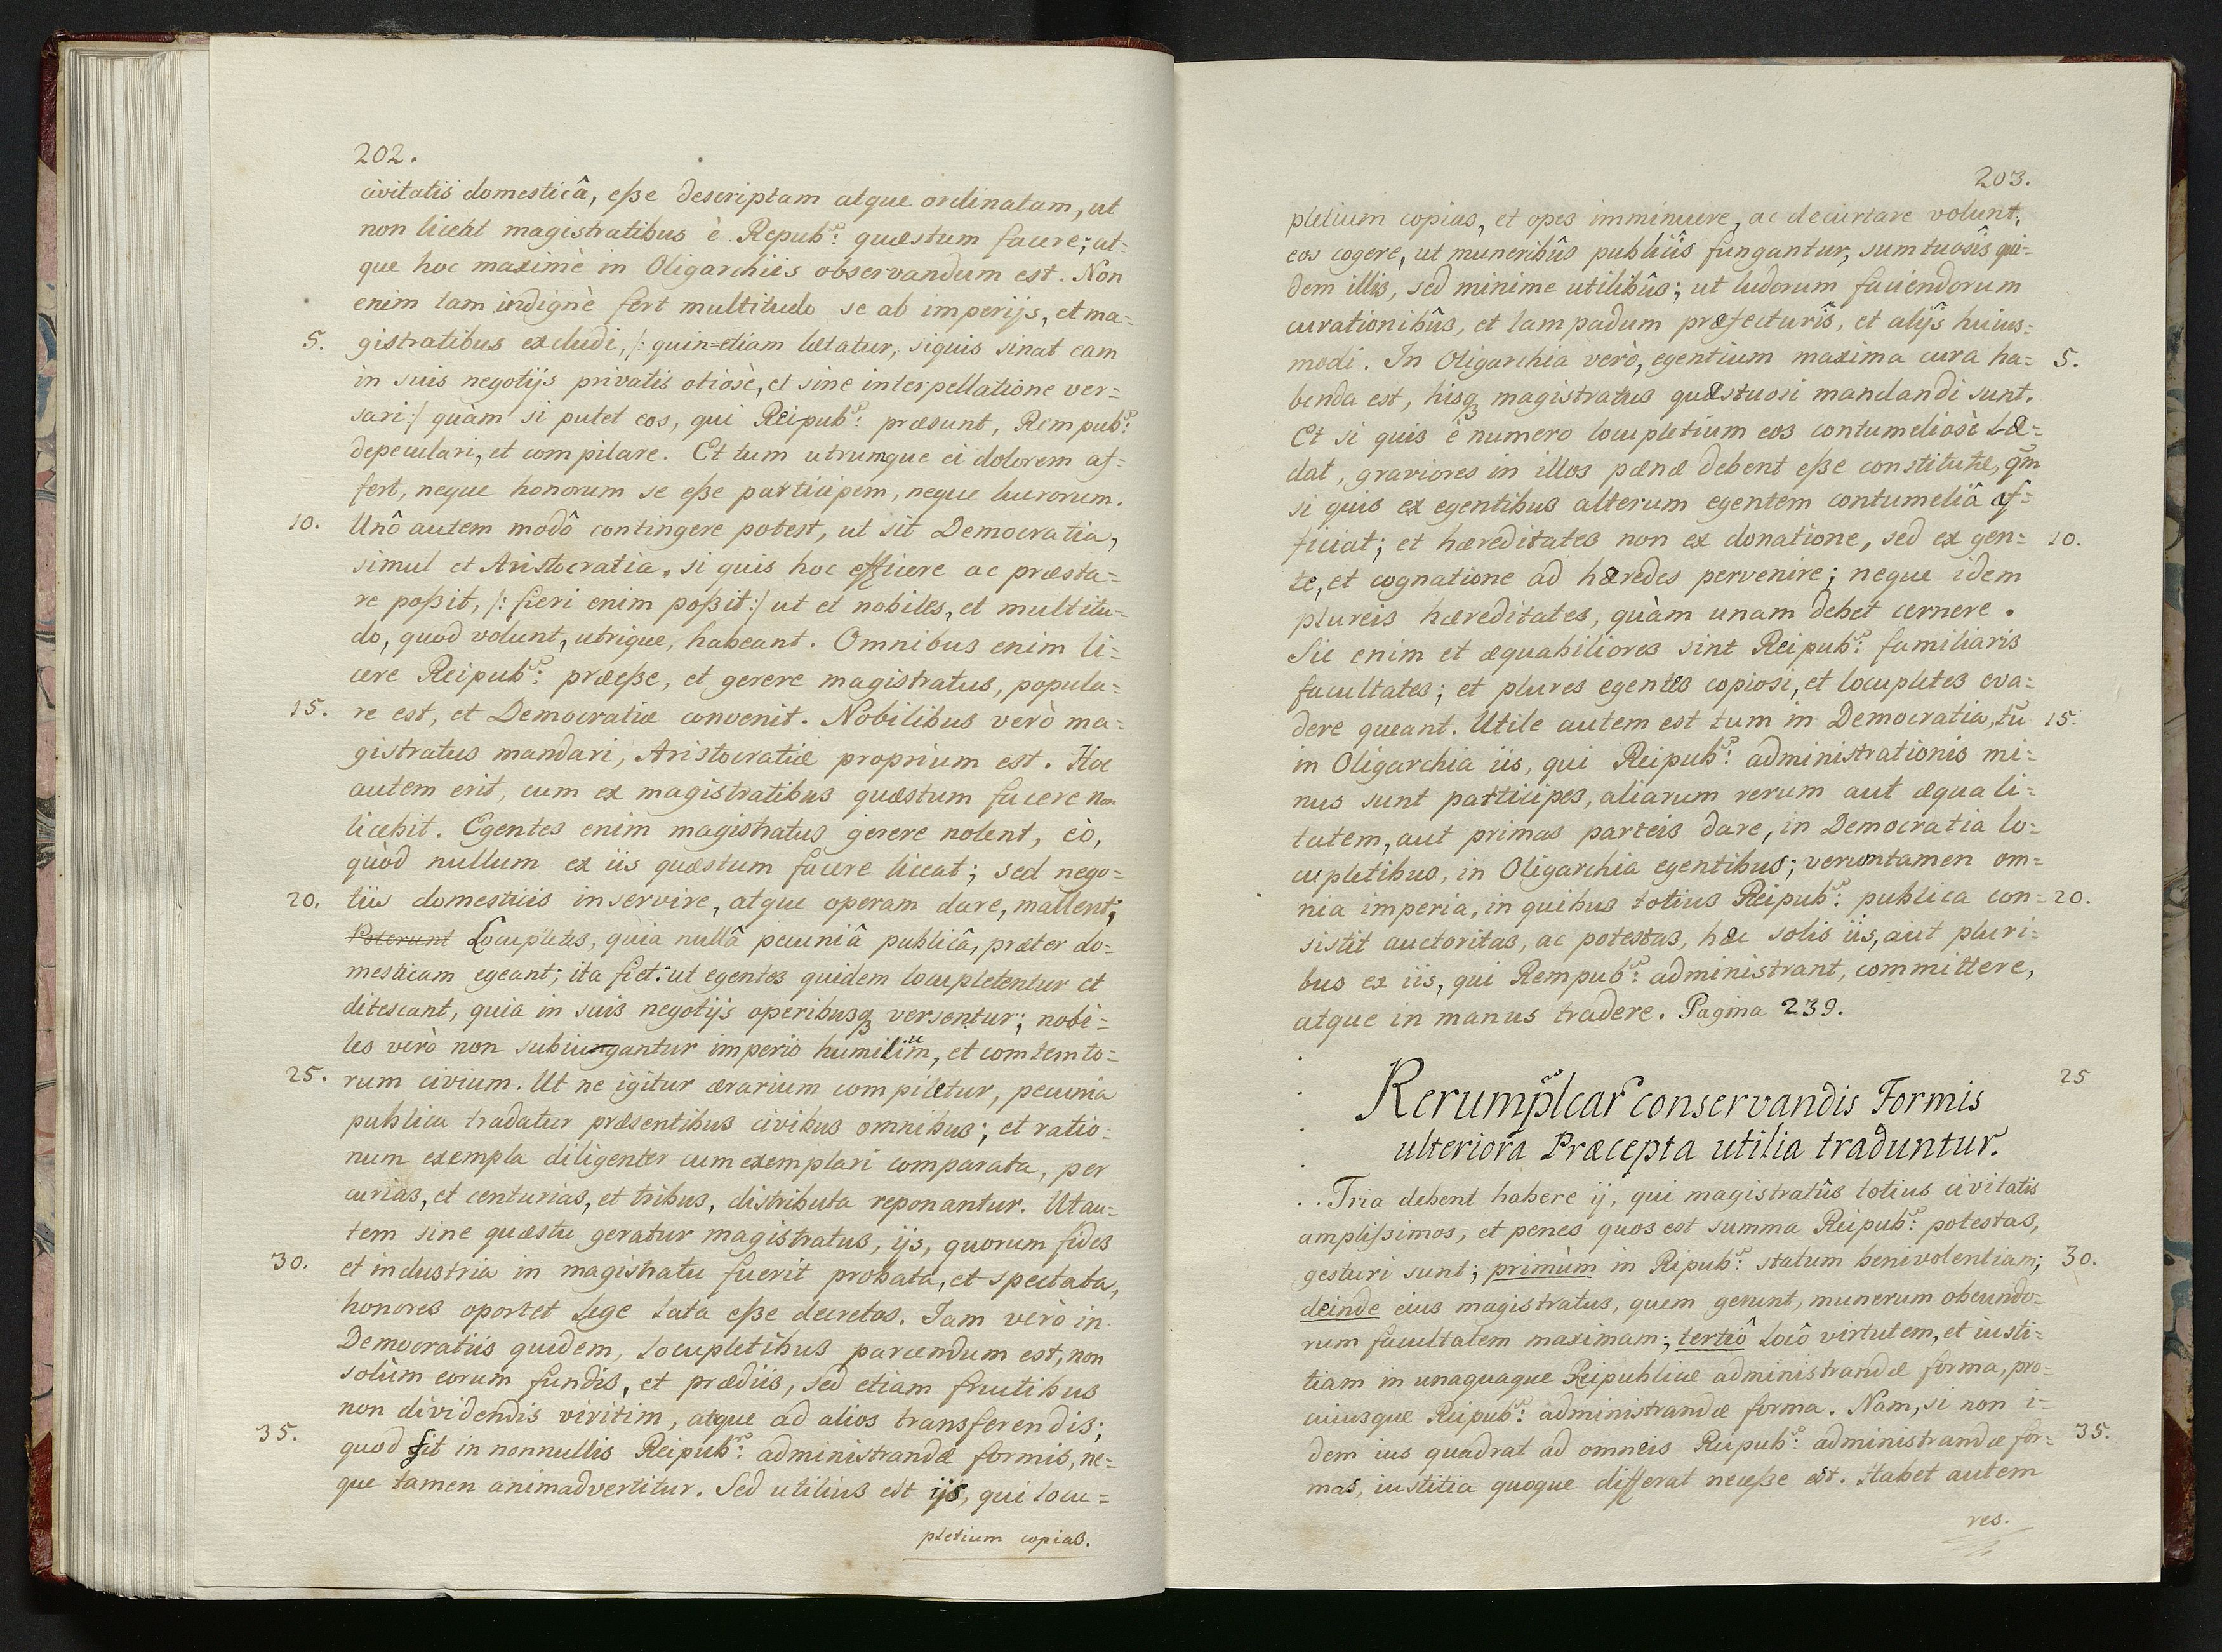 202.
civitatis domesticâ, eße descriptam atque ordinatam, ut
non liceat magistratibus è Repub.: quæstum facere; at-
que hoc maximè in Oligarchiis observandum est. Non
enim tam indignè fert multitudo se ab imperijs, et ma=
5. gistratibus excludi, /: quin=etiam lætatur, siquis sinat eam
in suis negotijs privatis otiosè, et sine interpellatione ver=
sari:/ quàm si putet eos, qui Reipub.: præsunt, Rempub.:
depeculari, et compilare. Et tum utrumque ei dolorem af=
fert, neque honorum se eße participem, neque lucrorum.
10. Unô autem modô contingere potest, ut sit Democratia,
simul et Aristocratia, si quis hoc efficere ac præsta=
re poßit, /: fieri enim poßit:/ ut et nobiles, et multitu=
do, quod volunt, utrique, habeant. Omnibus enim li=
cere Reipub.: præeße, et gerere magistratus, popula=
15. re est, et Democratiæ convenit. Nobilibus verò ma=
gistratus mandari, Aristocratiæ proprium est. Hoc
autem erit, cum ex magistratibus quæstum facere non
licebit. Egentes enim magistratus gerere nolent, eò,
quòd nullum ex iis quæstum facere liceat; sed nego=
20. tiis domesticis inservire, atque operam dare, mallent;
Poterunt Locupletes, quia nullâ pecuniâ publicâ, præter do=
mesticam egeant; ita fiet: ut egentes quidem locupletentur et
ditescant, quia in suis negotijs operibusq3 versentur; nobi=
les verò non subiungantur imperio humilium, et comtemto=
25. rum civium. Ut ne igitur ærarium compiletur, pecunia
publica tradatur præsentibus civibus omnibus; et ratio=
num exempla diligenter cum exemplari comparata, per
curias, et centurias, et tribus, distributa reponantur. Ut au=
tem sine quæstu geratur magistratus, ijs, quorum fides
30. et industria in magistratu fuerit probata, et spectata,
honores oportet Lege Lata eße decretos. Iam verò in
Democratiis quidem, Locupletibus parcendum est, non
solùm eorum fundis, et prædiis, sed etiam fructibus
non dividendis viritim, atque ad alios transferendis;
35. quod fit in nonnullis Reipub.: administrandæ formis, ne=
que tamen animadvertitur. Sed utilius est ijs, qui locu=
pletium copias.
203.
pletium copias, et opes imminuere, ac decurtare volunt,
eos cogere, ut muneribûs publicîs fungantur, sumtuosîs qui=
dem illis, sed minime utilibûs; ut ludorum faciendorum
curationibûs, et lampadum præfecturîs, et alijs huius=
modi. In Oligarchia verò, egentium maxima cura ha= 5.
benda est, hisq3 magistratus quæstuosi mandandi sunt.
Et si quis è numero locupletium eos contumeliosè Læ=
dat, graviores in illos pænæ debent eße constitutæ, qm̃
si quis ex egentibus alterum egentem contumeliâ af=
ficiat; et hæreditates non ex donatione, sed ex gen= 10.
te, et cognatione ad hæredes pervenire; neque idem
plureis hæreditates, quàm unam debet cernere.
Sic enim et æquabiliores sint Reipub.: familiaris
facultates; et plures egentes copiosi, et locupletes eva=
dere queant. Utile autem est tum in Democratia, tũ 15.
in Oligarchia iis, qui Reipub.: administrationis mi=
nus sunt participes, aliarum rerum aut æquali=
tatem, aut primas parteis dare, in Democratia lo=
cupletibus, in Oligarchia egentibus; veruntamen om=
nia imperia, in quibus totius Reipub.: publica con= 20.
sistit auctoritas, ac potestas, hæc solis iis, aut pluri=
bus ex iis, qui Rempub.: administrant, committere,
atque in manus tradere. Pagina 239.
Rerumplcar̃ conservandis Formis 25
ulteriora Præcepta utilia traduntur.
..Tria debent habere ij, qui magistratûs totius civitatis
amplißimos, et penes quos est summa Reipub.: potestas,
gesturi sunt; primùm in Ripub.: statum benivolentiam; 30.
deinde eius magistratus, quem gerunt, munerum obeundo=
rum facultatem maximam; tertiô Locô virtutem, et iusti=
tiam in unaquaque Reipublicæ administrandæ forma, pro=
cuiusque Reipub.: administrandæ forma. Nam, si non i=
dem ius quadrat ad omneis Reipub.: administrandæ for= 35.
mas, iustitia quoque differat neceße est. Habet autem
res.